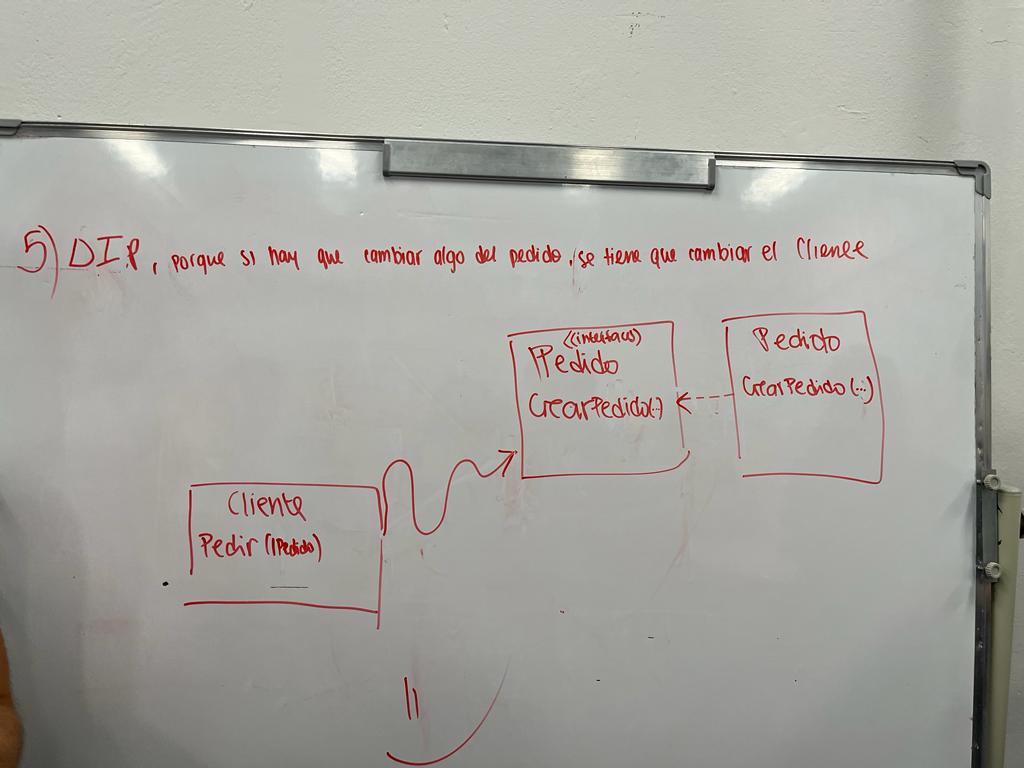 5) DIP, porque si hay que cambiar algo del pedido, se tiene que cambiar el Cliente
<<interfaces>>
IPedido
CrearPedido(..)
Pedido
CrearPedido(...)
Cliente
Pedir (IPedido)